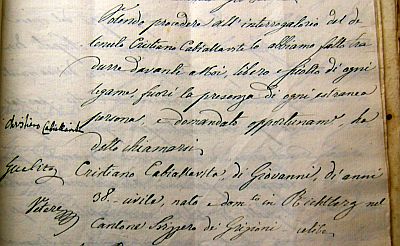 Volendo procedere all'interrogatorio del de
tenuto Cristiano Cabiallavita lo abbiamo fatto tra
durre davanti a Noi, libero e sciolto di ogni
legame, fuori la presenza di ogni estranea
persona, e domandato opportunam. ha
detto chiamarsi
Christiano Cabiallavita
Cristiano Cabiallavita di Giovanni, di anni
38. civile, nato e dom.to in nel
Cantone Svizzero de Grigioni celibe